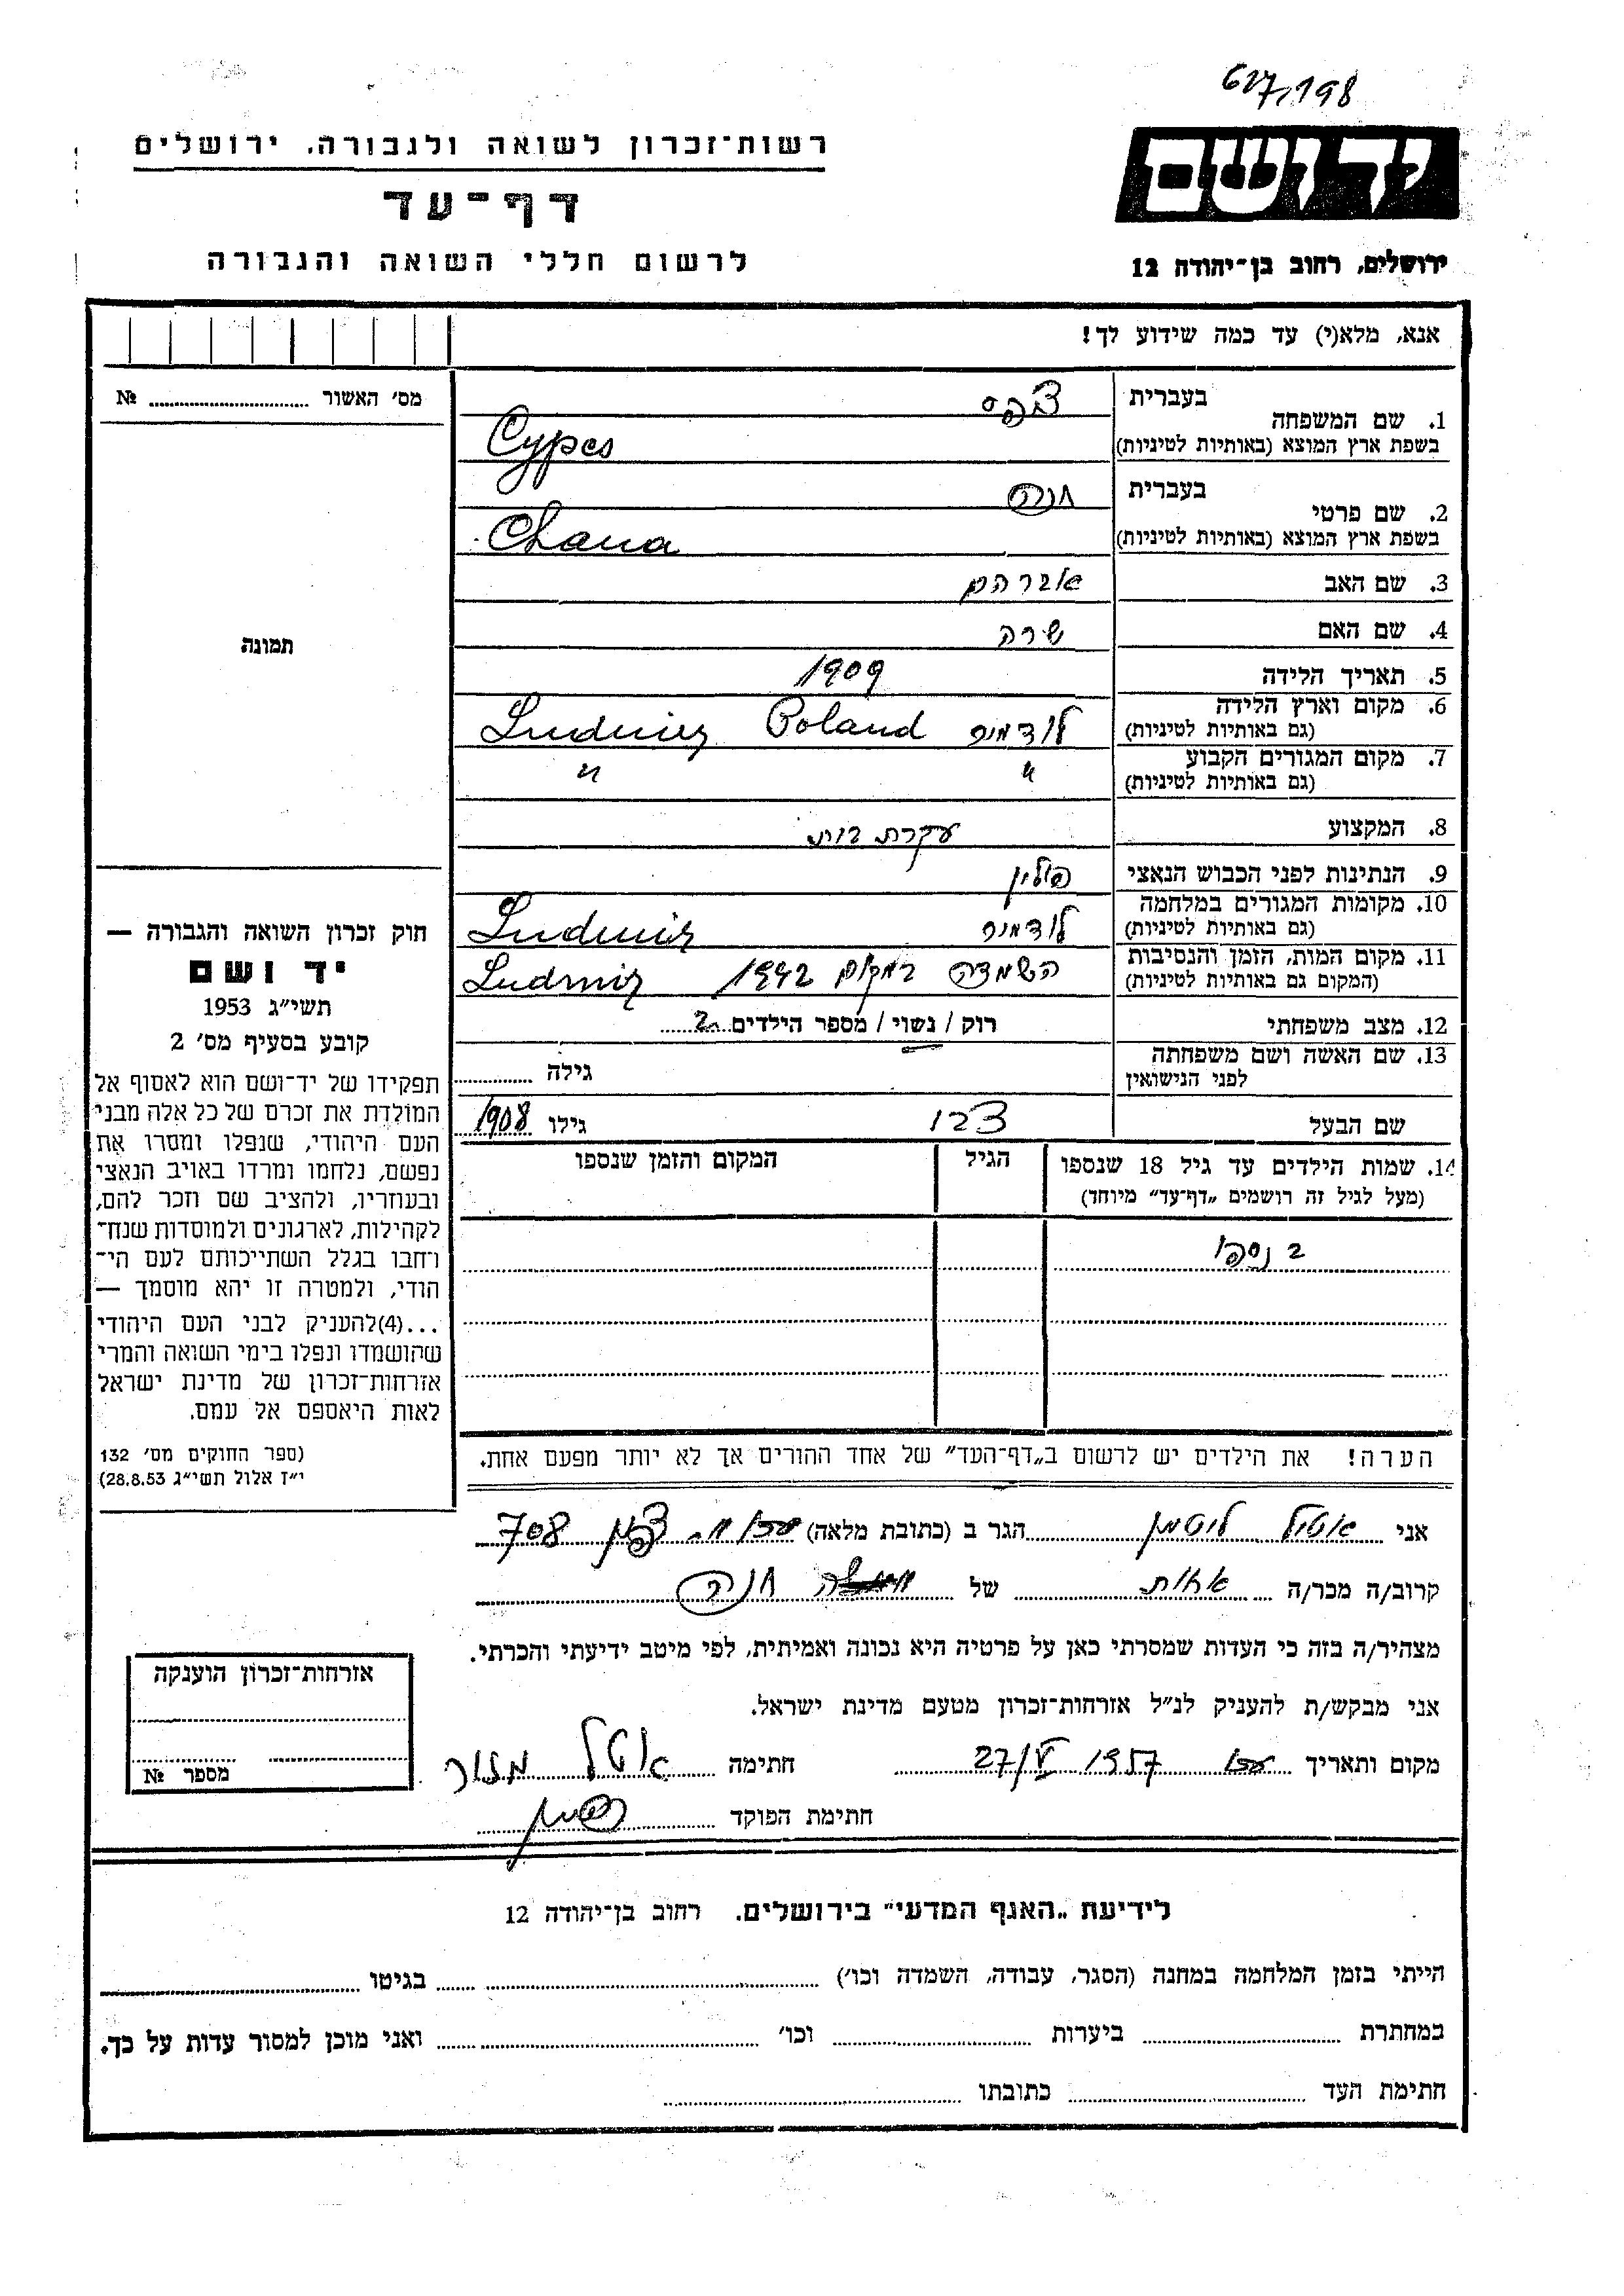 627,198
ידושם
רשות־זכרון לשואה ולגבורה, ירושלים
דף־עד
לרשום חללי השואה והגבורה
ירושלים, רחוב בן־יהודה 12
אנא, מלא(י) עד כמה שידוע לך!
מס׳ האשור № ........
תמונה
בעברית
1. שם המשפחה
בשפת ארץ המוצא (באותיות לטיניות)
Cypes
בעברית חנה
2. שם פרטי
בשפת ארץ המוצא (באותיות לטיניות)
Chana
3. שם האב אברהם
4. שם האם שרה
5. תאריך הלידה 1909
6. מקום וארץ הלידה
(גם באותיות לטיניות)
לודמיר Poland Ludmir
7. מקום המגורים הקבוע
(גם באותיות לטיניות)
" "
8. המקצוע עקרת בית
9. הנתינות לפני הכבוש הנאצי פולין
10. מקומות המגורים במלחמה
(גם באותיות לטיניות)
לודמיר Ludmir
11. מקום המות, הזמן והנסיבות
(המקום גם באותיות לטיניות)
השמדה במקום 1942 Ludmir
12. מצב משפחתי רוק / נשוי / מספר הילדים 2
13. שם האשה ושם משפחתה
לפני הנישואין
גילה ........
שם הבעל גילו 1908
14. שמות הילדים עד גיל 18 שנספו
(מעל לגיל זה רושמים „דף־עד״ מיוחד)
הגיל
המקום והזמן שנספו
2 נספו
הערה! את הילדים יש לרשום ב„דף־העד״ של אחד ההורים אך לא יותר מפעם אחת.
חוק זכרון השואה והגבורה —
יד ושם
תשי״ג 1953
קובע בסעיף מס׳ 2
תפקידו של יד־ושם הוא לאסוף אל
המולדת את זכרם של כל אלה מבני
העם היהודי, שנפלו ומסרו את
נפשם, נלחמו ומרדו באויב הנאצי
ובעוזריו, ולהציב שם וזכר להם,
לקהילות, לארגונים ולמוסדות שנח־
רחבו בגלל השתייכותם לעם הי־
הודי, ולמטרה זו יהא מוסמך —
...(4)להעניק לבני העם היהודי
שהושמדו ונפלו בימי השואה והמרי
אזרחות־זכרון של מדינת ישראל
לאות היאספם אל עמם.
(ספר החוקים מס׳ 132
י״ז אלול תשי״ג 28.8.53)
אני אטיל ליטמן הגר ב (כתובת מלאה) 708
קרוב/ה מכר/ה אחות של חנה
מצהיר/ה בזה כי העדות שמסרתי כאן על פרטיה היא נכונה ואמיתית, לפי מיטב ידיעתי והכרתי.
אני מבקש/ת להעניק לנ״ל אזרחות־זכרון מטעם מדינת ישראל.
מקום ותאריך עכו 27/V 1957 חתימה
חתימת הפוקד
אזרחות־זכרון הוענקה
מספר №
לידיעת „האגף המדעי״ בירושלים. רחוב בן־יהודה 12
הייתי בזמן המלחמה במחנה (הסגר, עבודה, השמדה וכו׳) ........ בגיטו ........
במחתרת ........ ביערות ........ וכו׳ ........ ואני מוכן למסור עדות על כך.
חתימת העד ........ כתובתו ........